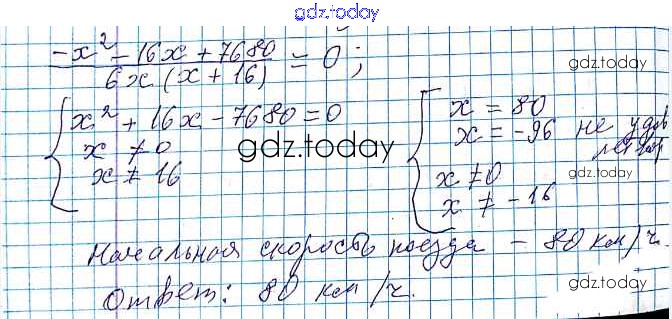 gdz.today
(-x² - 16x + 7680) / (6x(x + 16)) = 0;
gdz.today
{ x² + 16x - 7680 = 0
x ≠ 0
x ≠ 16
gdz.today
{ x = 80
x = -96 не удов
летвор
x ≠ 0
x ≠ -16
Начальная скорость поезда - 80 км/ч.
Ответ: 80 км/ч.
gdz.today